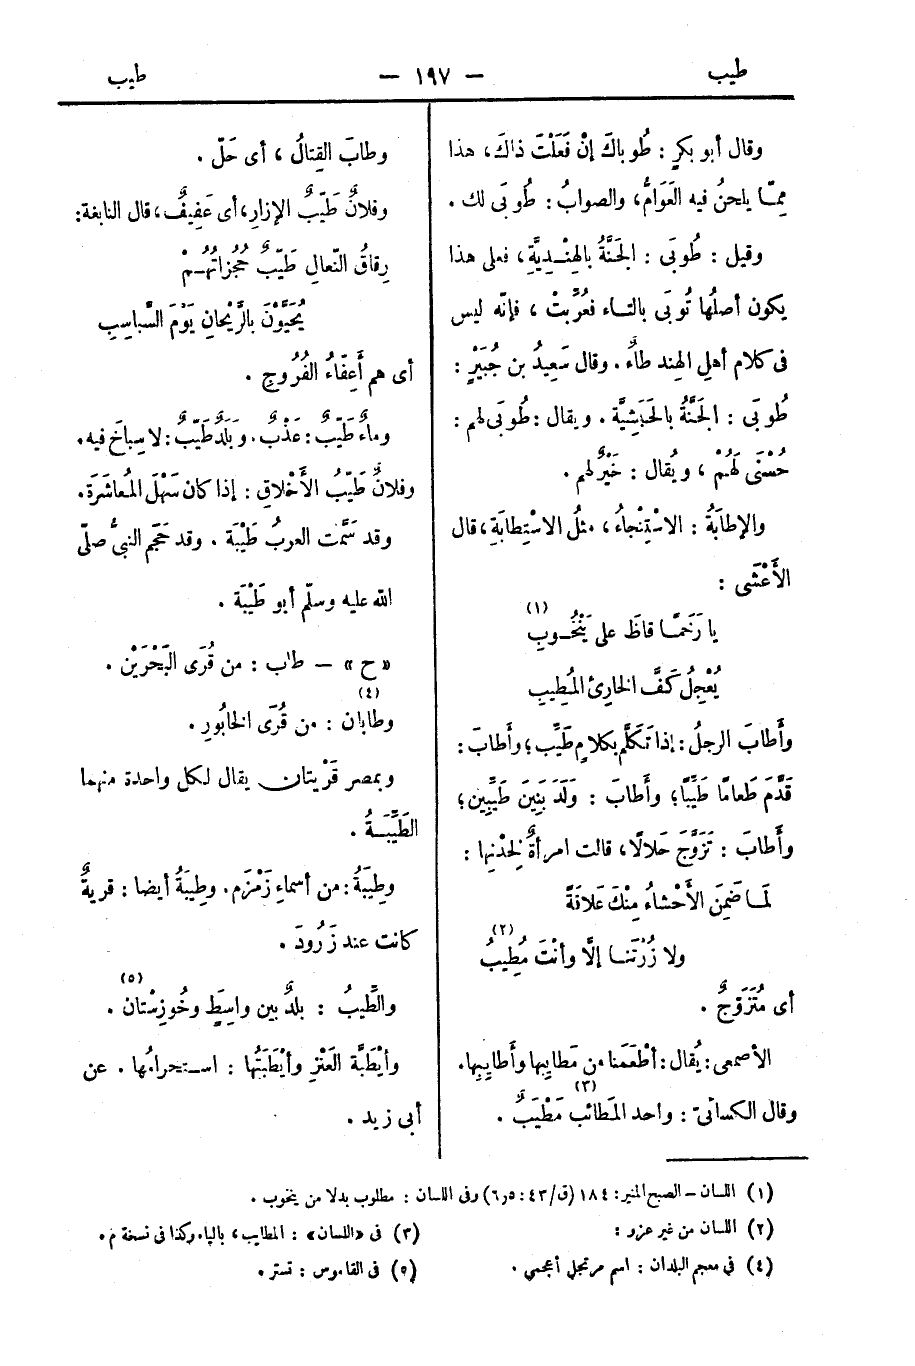 طيب
— ١٩٧ —
طيب
وقال أبو بكرٍ : طُوباكَ إنْ فَعَلْتَ ذاكَ، هذا
مِمّا يلحنُ فيه العَوَامُّ، والصوابُ : طُوبَى لك .
وقيل : طُوبَى : الجَنَّةُ بالهِنْدِيَّةِ، فعلى هذا
يكون أصلُها تُوبَى بالتاء فعُرِّبتْ ، فإنّه ليس
فى كلام أهلِ الهند طاءٌ. وقال سَعِيدُ بن جُبَيْرٍ :
طُوبَى : الجَنَّةُ بالحَبَشِيَّة . ويقال : طُوبَى لهم :
حُسْنَى لَهُمْ ، ويُقال : خَيْرٌ لهم .
والإطابَةُ : الاسْتِنْجاءُ ، مثلُ الاسْتِطابَةِ ، قال
الأعْشَى :
يا رَخَمًا قاظَ على يَنْخُوبِ (١)
يُعْجِلُ كَفَّ الخارِئ المُطِيبِ
وأَطابَ الرجلُ : إذا تَكَلَّم بكلامٍ طَيِّب ؛ وأَطابَ :
قَدَّمَ طَعامًا طَيِّبًا؛ وأَطابَ : وَلَدَ بَنِينَ طَيِّبِين ؛
وأَطابَ : تَزَوَّجَ حَلالًا، قالت امرأةٌ لِخِدْنِها :
لَمَا ضَمِنَ الأَحْشاءُ مِنْكَ عَلاقَةً
ولا زُرْتَنا إلَّا وأنْتَ مُطِيبُ (٢)
أى مُتَزَوِّجٌ .
الأصمعى: يُقال: أطْعَمَنا من مَطايِبِها وأَطايِبِها.
وقال الكسائىّ : واحد المَطائب (٣) مَطْيَبٌ .
وطابَ القِتالُ ، أى حَلّ .
وفلانٌ طَيِّبُ الإزارِ، أى عَفِيفٌ، قال النابغة:
رِقاقُ النّعالِ طَيِّبٌ حُجزاتُهُمْ
يُحَيَّوْنَ بالرَّيْحانِ يَوْمَ السَّباسِبِ
أى هم أَعِفّاءُ الفُرُوجِ .
وماءٌ طَيِّبٌ : عَذْبٌ . وبَلَدٌ طَيِّبٌ : لا سِباخَ فيه.
وفلانٌ طَيِّبُ الأَخْلاقِ : إذا كان سَهْلَ المُعاشَرَة.
وقد سَمَّت العربُ طَيْبَة . وقد حَجَم النبىَّ صلّى
الله عليه وسلّم أبو طَيْبَة .
«ح» — طاب : من قُرَى البَحْرَيْن .
وطابان (٤) : من قُرَى الخابُورِ .
وبمصر قَرْيتان يقال لكل واحدة منهما
الطَيِّبَةُ .
وطِيبَةُ : من أسماءِ زَمْزَم . وطِيبَةُ أيضا : قريةٌ
كانت عند زَرُودَ .
والطِّيبُ : بلدٌ بين واسِطٍ وخُوزِسْتان (٥) .
وأيْطَبَّة العَنْزِ وأَيْطَبَتُها : استحرامُها . عن
أبى زيد .
(١) اللسان – الصبح المنير : ١٨٤ (ق/٤٣ : ٥و٦) وفى اللسان : مطلوب بدلا من ينخوب .
(٢) اللسان من غير عزو :
(٣) فى «اللسان» : المطايب، بالياء وكذا فى نسخة م.
(٤) فى معجم البلدان : اسم مرتجل أعجمى .
(٥) فى القاموس : تستر .